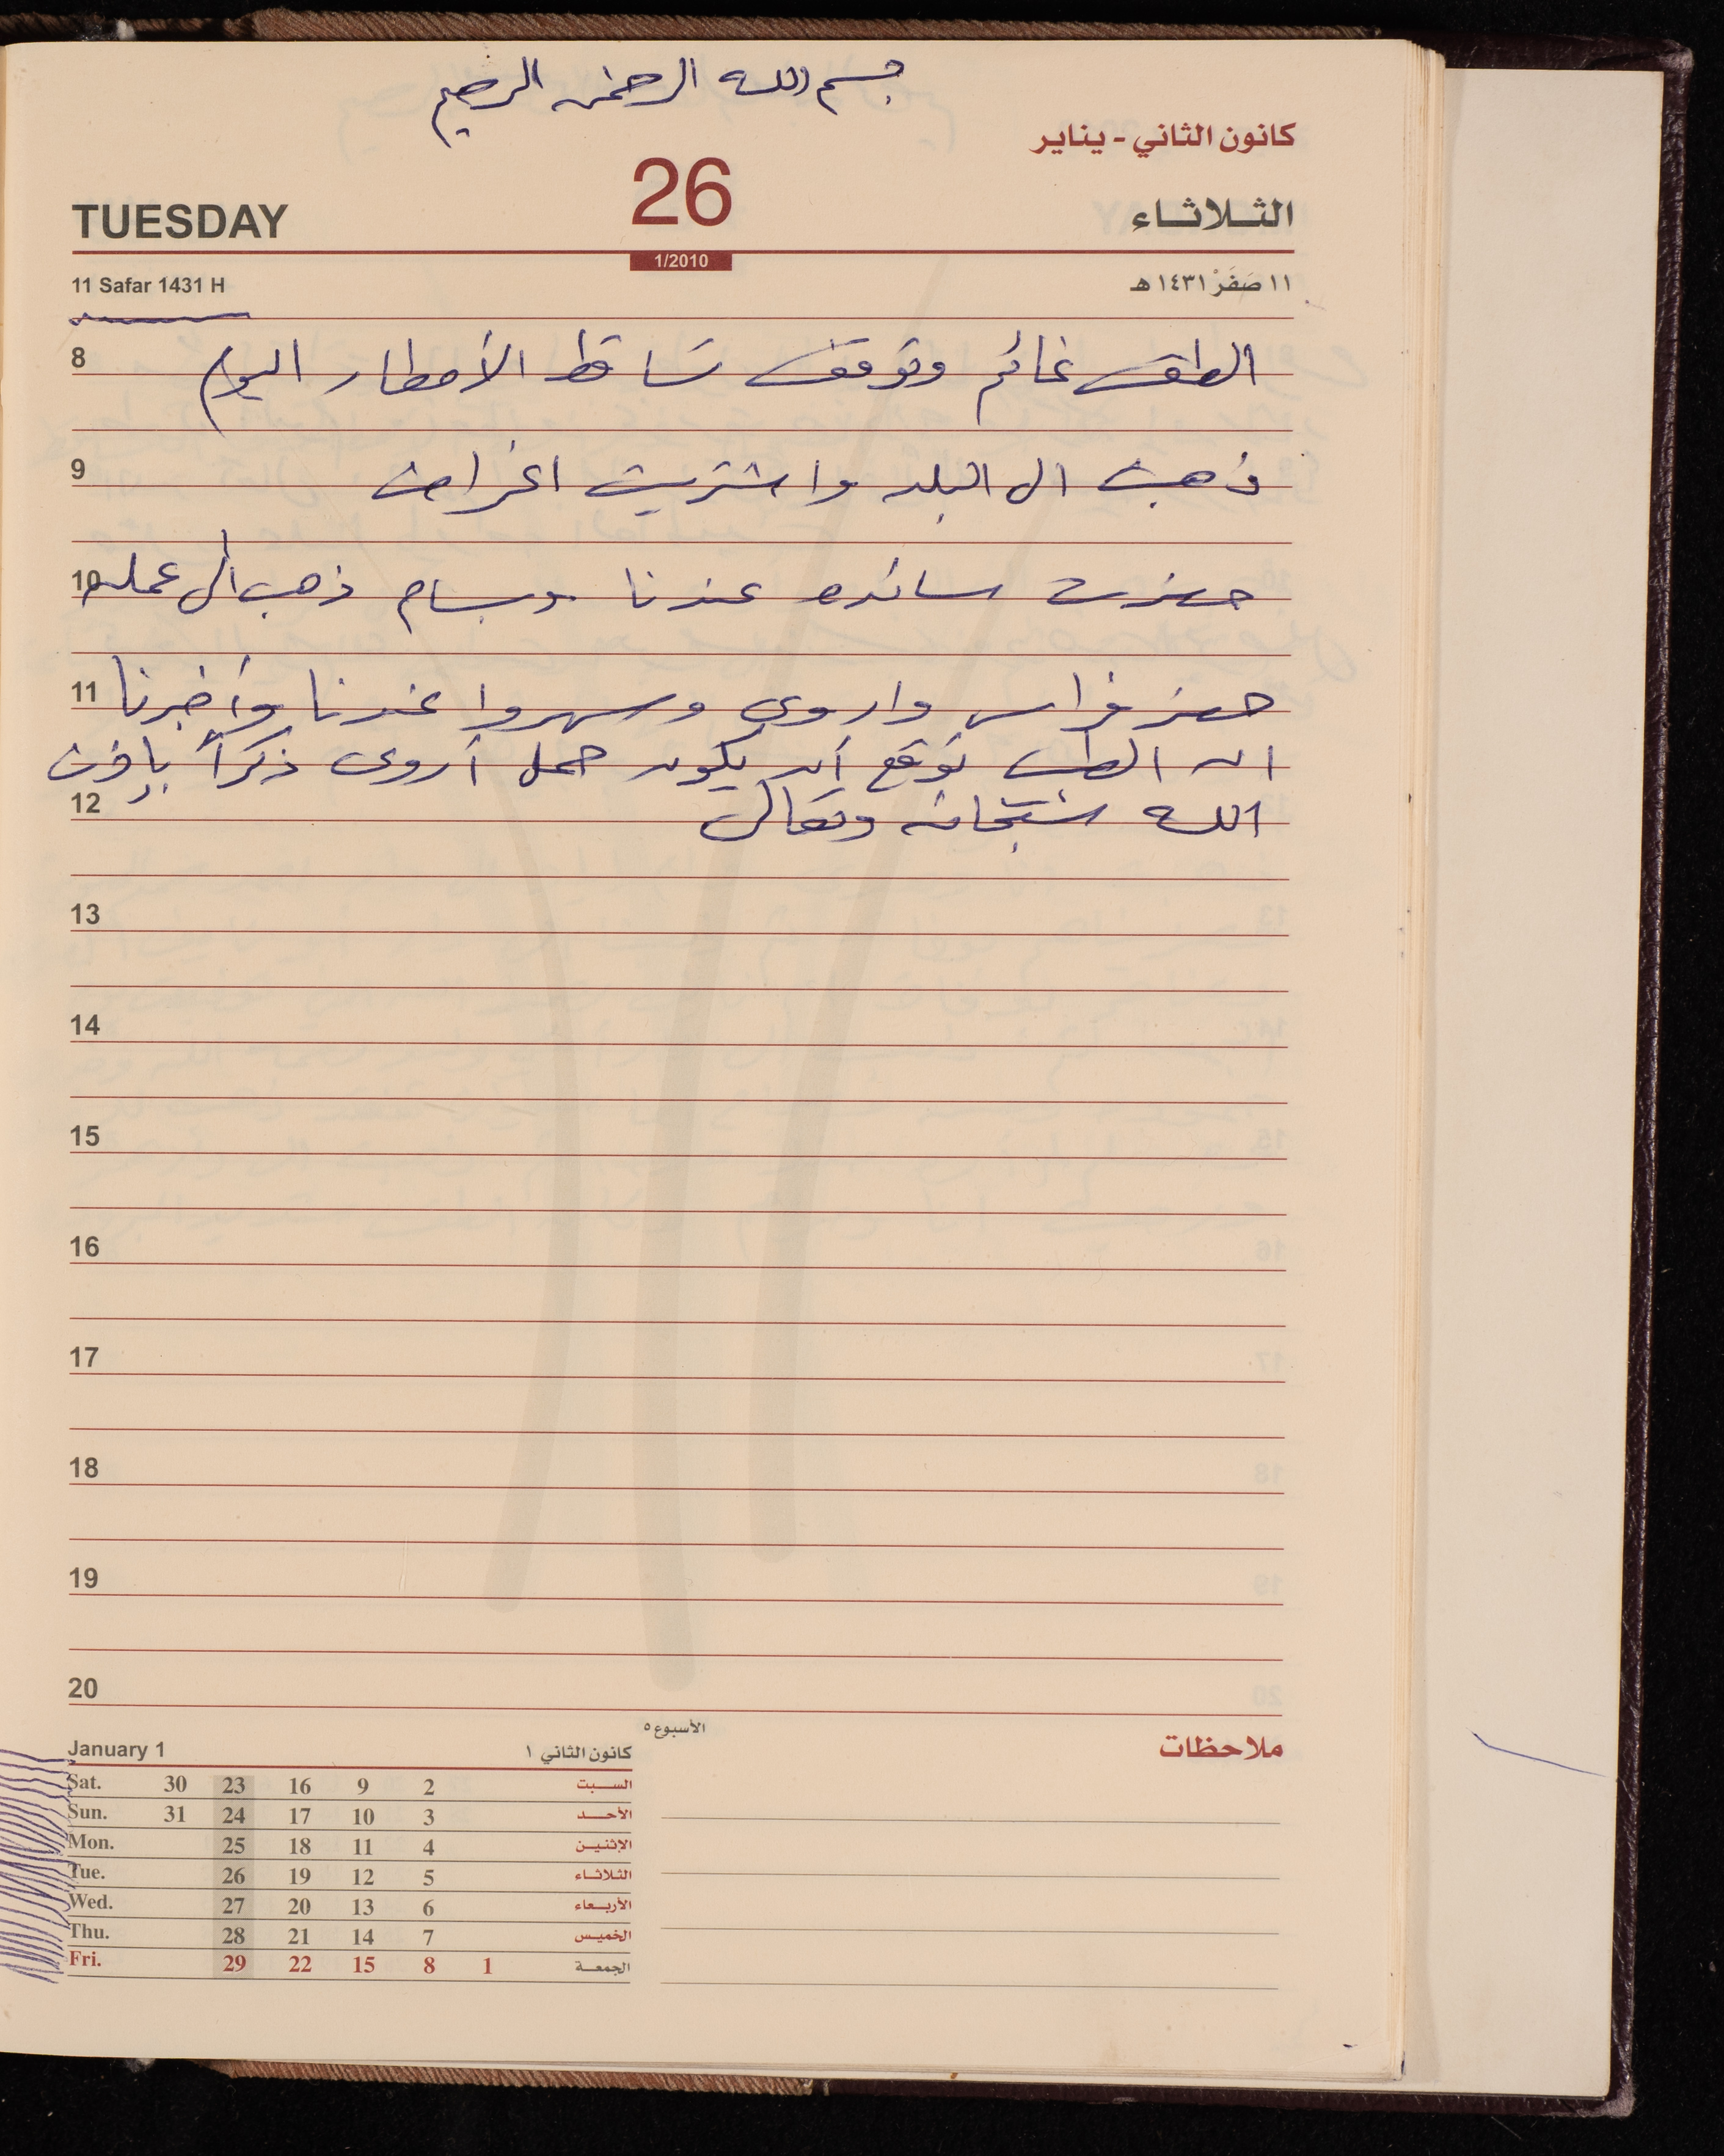 بسم الله الرحمن الرحيم
كانون الثاني - يناير
TUESDAY 26 الثلاثاء
1/2010
11 Safar 1431 H ١١ صَفَرْ ١٤٣١ هـ
8 الطقس غائم وتوقف تساقط الأمطار اليوم
9 ذهبت الى البلد واشتريت اغراض
10 حضرت سائده عندنا وبسام ذهب الى عمله
11 حضر فراس واروى وسهروا عندنا وأخبرنا
ان الطب توقع أن يكون حمل أروى ذكراً بإذن
12 الله سبحانه وتعالى
13
14
15
16
17
18
19
20
الأسبوع ٥
ملاحظات
January 1 كانون الثاني ١
Sat. 30 23 16 9 2 السبت
Sun. 31 24 17 10 3 الأحد
Mon. 25 18 11 4 الإثنين
Tue. 26 19 12 5 الثلاثاء
Wed. 27 20 13 6 الأربعاء
Thu. 28 21 14 7 الخميس
Fri. 29 22 15 8 1 الجمعة